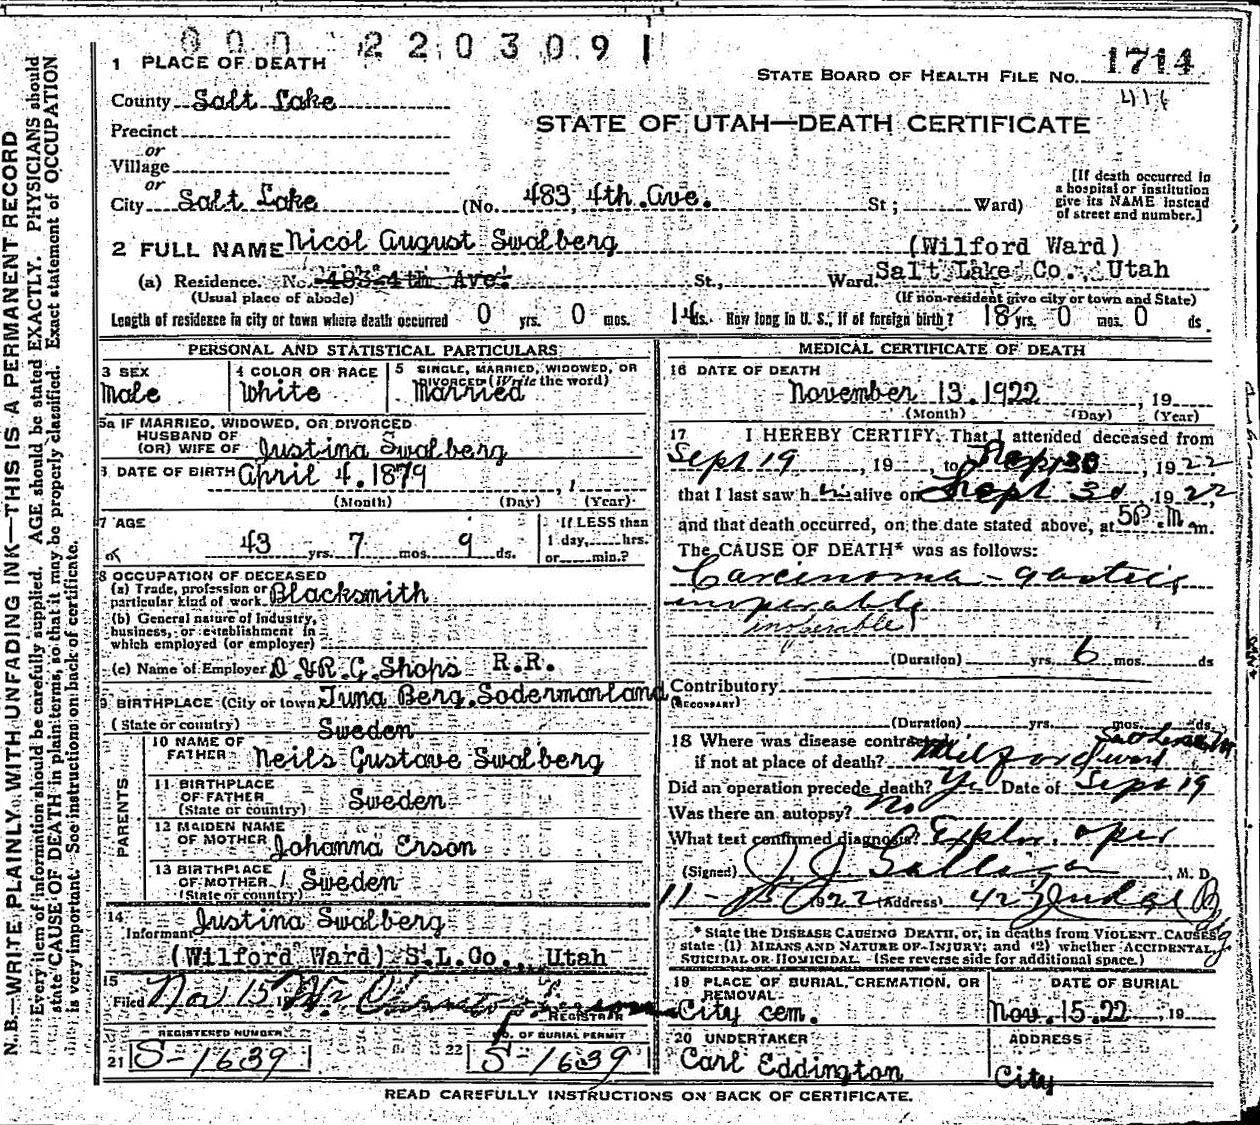 000 2203091
1 PLACE OF DEATH
STATE BOARD OF HEALTH FILE No. 1714
County Salt Lake
416
STATE OF UTAH—DEATH CERTIFICATE
Precinct
or
Village
or
City Salt Lake (No. 483, 4th. Ave. St; Ward)
[If death occurred in
a hospital or institution
give its NAME instead
of street and number.]
2 FULL NAME Nicol August Swalberg (Wilford Ward)
(a) Residence. No. 483-4th Ave. St., Ward. Salt Lake Co., Utah
(Usual place of abode) (If non-resident give city or town and State)
Length of residence in city or town where death occurred 0 yrs. 0 mos. 14 ds. How long in U. S., if of foreign birth? 18 yrs. 0 mos. 0 ds.
PERSONAL AND STATISTICAL PARTICULARS
3 SEX Male
4 COLOR OR RACE White
5 SINGLE, MARRIED, WIDOWED, OR
DIVORCED (Write the word)
Married
5a IF MARRIED, WIDOWED, OR DIVORCED
HUSBAND OF
(OR) WIFE OF Justina Swalberg
6 DATE OF BIRTH April 4. 1879
(Month) (Day) (Year)
7 AGE
43 yrs. 7 mos. 9 ds.
If LESS than
1 day, hrs.
or min.?
8 OCCUPATION OF DECEASED
(a) Trade, profession or
particular kind of work Blacksmith
(b) General nature of Industry,
business, or establishment in
which employed (or employer)
(c) Name of Employer D. & R. G. Shops R.R.
9 BIRTHPLACE (City or town) Tuna Berg, Sodermanland,
(State or country) Sweden
PARENTS
10 NAME OF
FATHER Neils Gustave Swalberg
11 BIRTHPLACE
OF FATHER
(State or country) Sweden
12 MAIDEN NAME
OF MOTHER Johanna Erson
13 BIRTHPLACE
OF MOTHER
(State or country) Sweden
14
Informant Justina Swalberg
(Wilford Ward) S.L.Co., Utah
15
Filed Nov 15
REGISTRAR
REGISTERED NUMBER
21 S-1639
NO. OF BURIAL PERMIT
22 S-1639
MEDICAL CERTIFICATE OF DEATH
16 DATE OF DEATH
November 13. 1922, 19
(Month) (Day) (Year)
17 I HEREBY CERTIFY, That I attended deceased from
Sept 19, 19 , to Sept 30, 1922
that I last saw him alive on Sept 30, 1922
and that death occurred, on the date stated above, at 5P.M. m.
The CAUSE OF DEATH* was as follows:
Carcinoma - gastric
inoperable
inoperable
(Duration) yrs. 6 mos. ds
Contributory
(SECONDARY)
(Duration) yrs. mos. ds.
18 Where was disease contracted
if not at place of death? Wilford Ward
Did an operation precede death? Yes Date of Sept 19
Was there an autopsy? No
What test confirmed diagnosis? Explor. oper
(Signed) J. J. , M. D.
11-15 1922 (Address) Judge
* State the DISEASE CAUSING DEATH, or, in deaths from VIOLENT CAUSES,
state (1) MEANS AND NATURE OF INJURY; and (2) whether ACCIDENTAL,
SUICIDAL OR HOMICIDAL. (See reverse side for additional space.)
19 PLACE OF BURIAL, CREMATION, OR
REMOVAL
City cem.
DATE OF BURIAL
Nov. 15. 22, 19
20 UNDERTAKER
Carl Eddington
ADDRESS
City
READ CAREFULLY INSTRUCTIONS ON BACK OF CERTIFICATE.
N. B.—WRITE PLAINLY, WITH UNFADING INK—THIS IS A PERMANENT RECORD
Every item of information should be carefully supplied. AGE should be stated EXACTLY. PHYSICIANS should
state CAUSE OF DEATH in plain terms, so that it may be properly classified. Exact statement of OCCUPATION
is very important. See instructions on back of certificate.